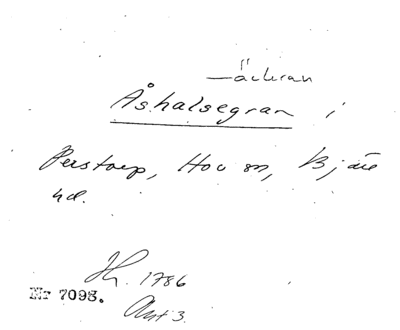 —åckran
Åshalsegran i
Perstorp, Hov sn, Bjäre
hd.
Jh. 1786
Nr 7098.
Akt 3.